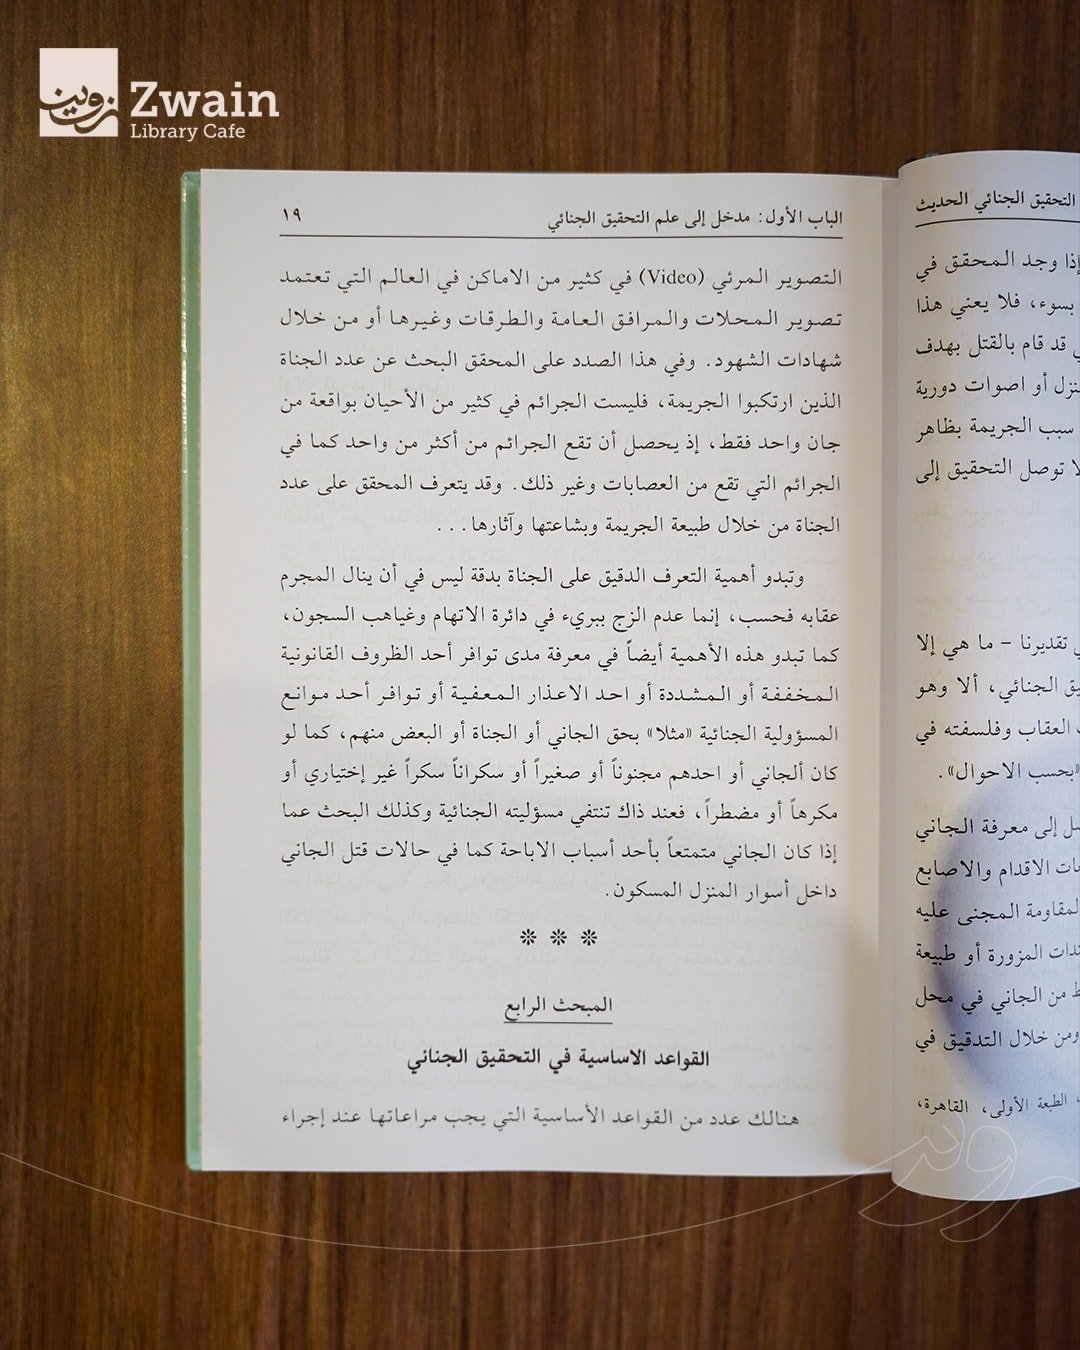 زوين
Zwain
Library Cafe
التحقيق الجنائي الحديث
إذا وجد المحقق في
بسوء، فلا يعني هذا
قد قام بالقتل بهدف
أو اصوات دورية
سبب الجريمة بظاهر
لا توصل التحقيق إلى
تقديرنا - ما هي إلا
الجنائي، ألا وهو
العقاب وفلسفته في
«بحسب الاحوال».
إلى معرفة الجاني
الاقدام والاصابع
لمقاومة المجنى عليه
المزورة أو طبيعة
من الجاني في محل
ومن خلال التدقيق في
الطبعة الأولى، القاهرة،
الباب الأول: مدخل إلى علم التحقيق الجنائي ١٩
التصوير المرئي (Video) في كثير من الاماكن في العالم التي تعتمد
تصوير المحلات والمرافق العامة والطرقات وغيرها أو من خلال
شهادات الشهود. وفي هذا الصدد على المحقق البحث عن عدد الجناة
الذين ارتكبوا الجريمة، فليست الجرائم في كثير من الأحيان بواقعة من
جان واحد فقط، إذ يحصل أن تقع الجرائم من أكثر من واحد كما في
الجرائم التي تقع من العصابات وغير ذلك. وقد يتعرف المحقق على عدد
الجناة من خلال طبيعة الجريمة وبشاعتها وآثارها...
وتبدو أهمية التعرف الدقيق على الجناة بدقة ليس في أن ينال المجرم
عقابه فحسب، إنما عدم الزج ببريء في دائرة الاتهام وغياهب السجون،
كما تبدو هذه الأهمية أيضاً في معرفة مدى توافر أحد الظروف القانونية
المخففة أو المشددة أو احد الاعذار المعفية أو توافر أحد موانع
المسؤولية الجنائية «مثلا» بحق الجاني أو الجناة أو البعض منهم، كما لو
كان ألجاني أو احدهم مجنوناً أو صغيراً أو سكراناً سكراً غير إختياري أو
مكرهاً أو مضطراً، فعند ذاك تنتفي مسؤليته الجنائية وكذلك البحث عما
إذا كان الجاني متمتعاً بأحد أسباب الاباحة كما في حالات قتل الجاني
داخل أسوار المنزل المسكون.
المبحث الرابع
القواعد الاساسية في التحقيق الجنائي
هنالك عدد من القواعد الأساسية التي يجب مراعاتها عند إجراء